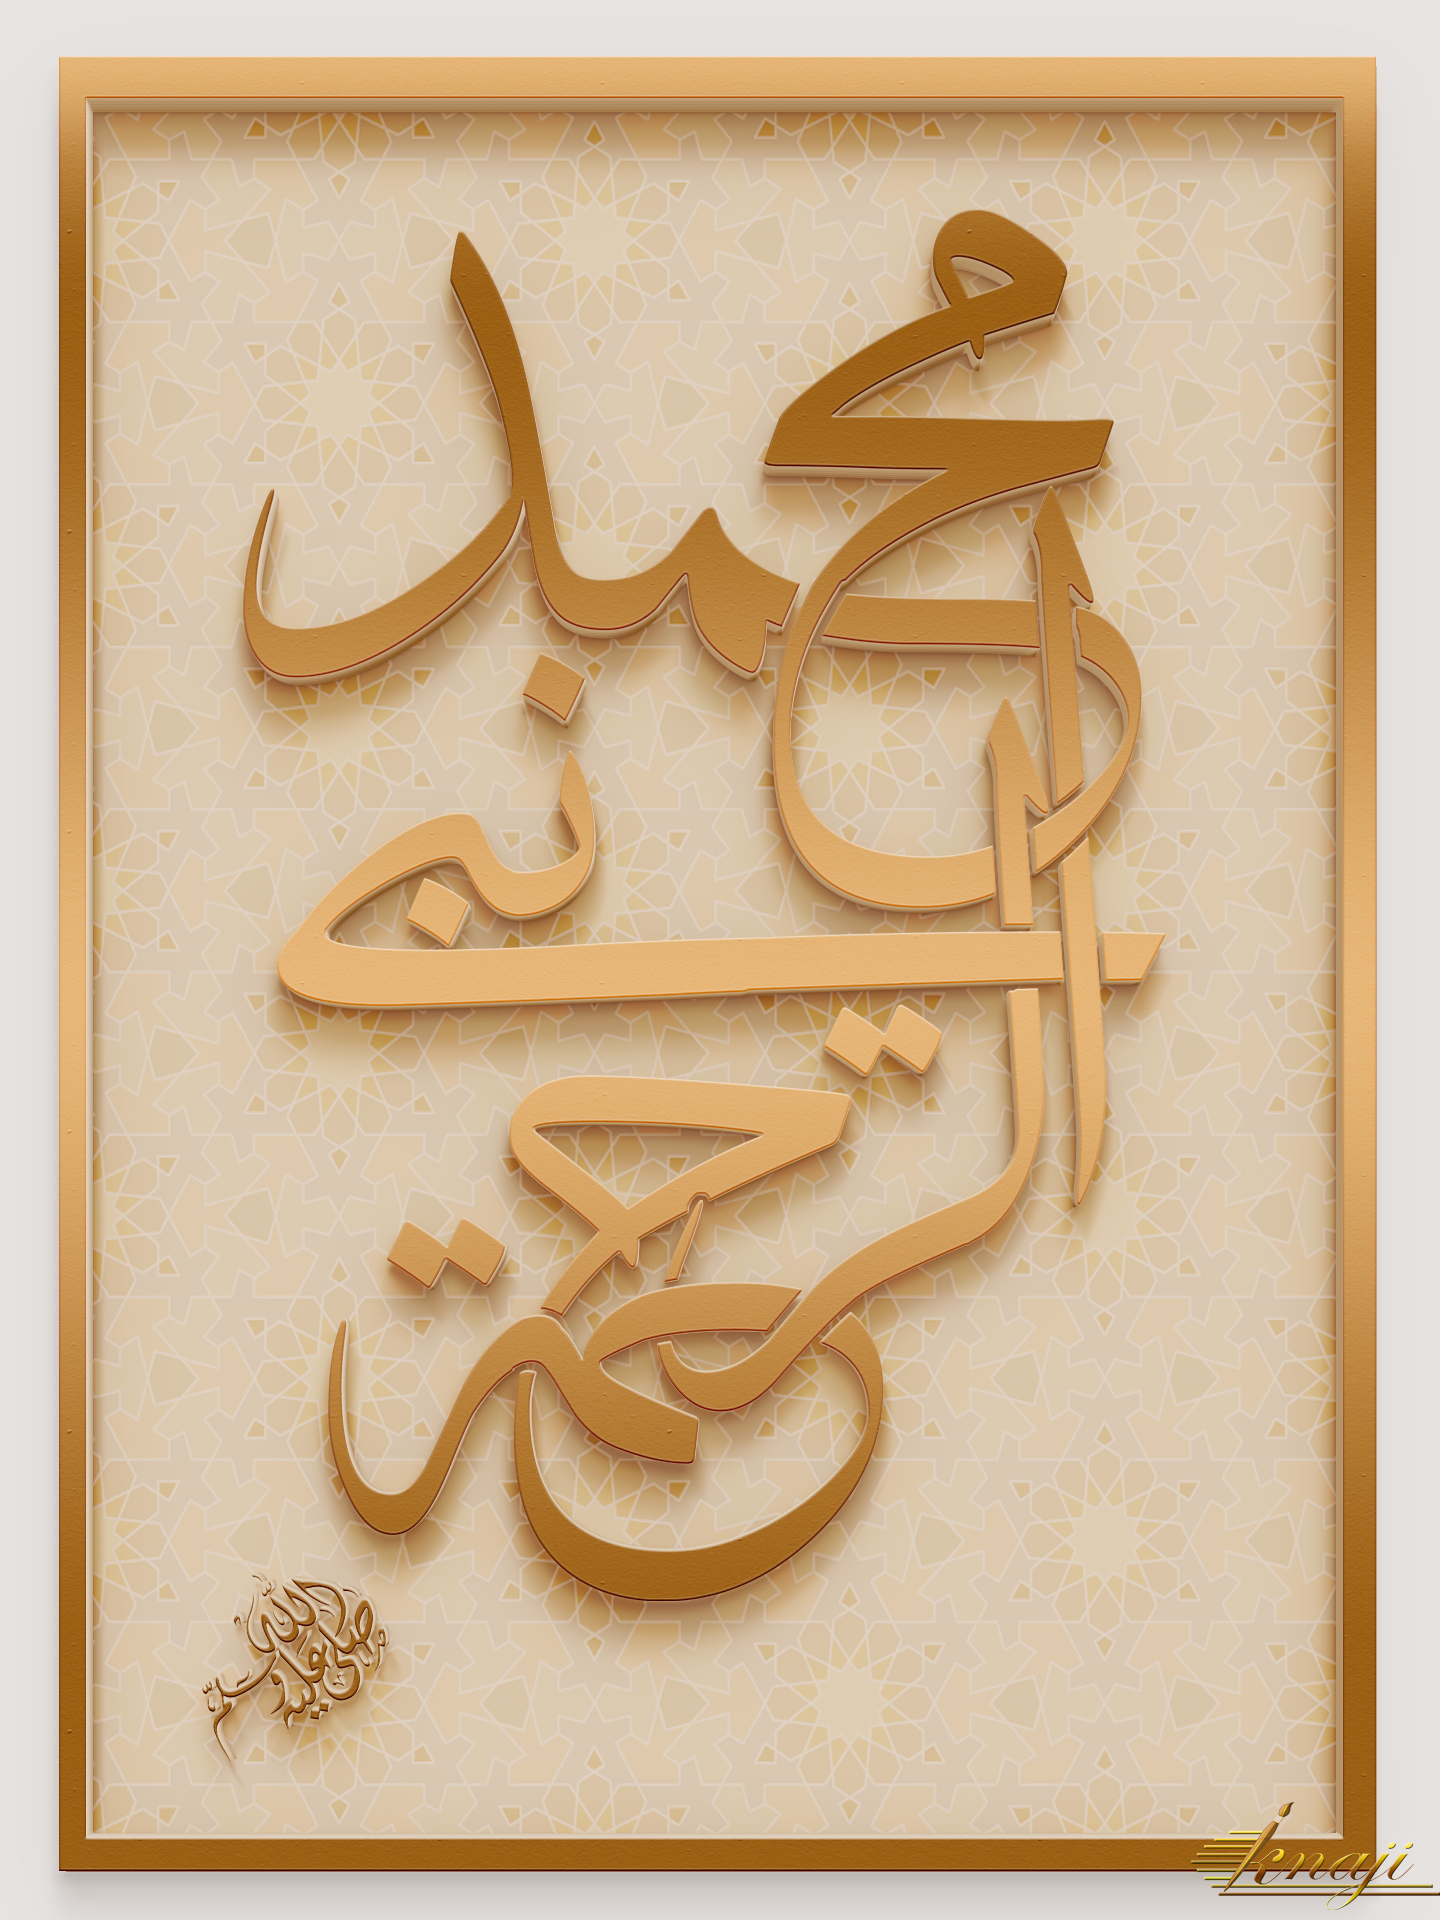 محمد
نبي
الرحمة
صلى الله عليه وسلم
knaji